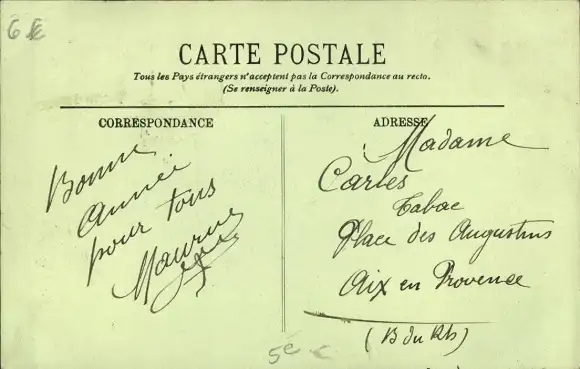 6 €
CARTE POSTALE
Tous les Pays étrangers n'acceptent pas la Correspondance au recto.
(Se renseigner à la Poste).
CORRESPONDANCE
Bonne
année
pour tous
Maurice
ADRESSE
Madame
Carles
Tabac
Place des Augustins
Aix en Provence
(B du Rh)
5€ €